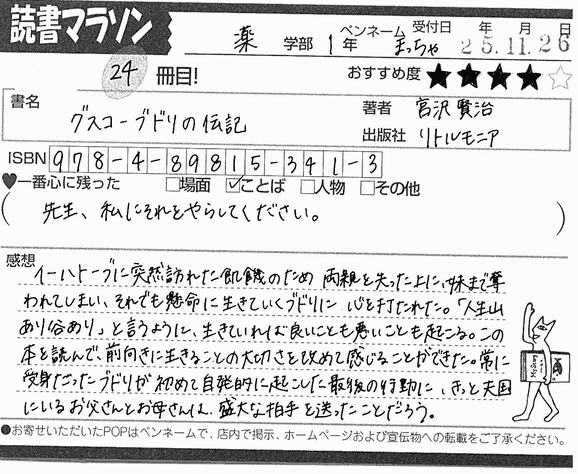 読書マラソン
薬 学部 1年 ペンネーム まっちゃ 受付日 25年11月26日
24 冊目! おすすめ度 ★★★★☆
書名 グスコーブドリの伝記
著者 宮沢賢治
出版社 リトルモニア
ISBN 978-4-89815-341-3
♥一番心に残った □場面 ☑ことば □人物 □その他
( 先生、私にそれをやらしてください。 )
感想
イーハトーブに突然訪れた飢饉のため 両親を失った上に、妹まで奪
われてしまい、それでも懸命に生きていくブドリに 心を打たれた。「人生山
あり谷あり」と言うように、生きていれば良いことも悪いことも起こる。この
本を読んで、前向きに生きることの大切さを改めて感じることができた。常に
受身だったブドリが初めて自発的に起こした最後の行動に、きっと天国
にいるお父さんとお母さんは、盛大な拍手を送ったことだろう。
●お寄せいただいたPOPはペンネームで、店内で掲示、ホームページおよび宣伝物への転載をご了承ください。